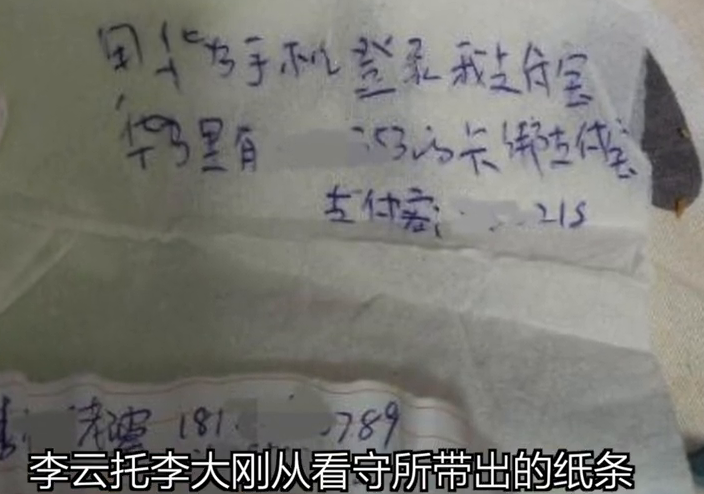 用华为手机登录我支付宝
华为里有 153的卡绑支付宝
支付宝: 215
老婆 181. .789
李云托李大刚从看守所带出的纸条